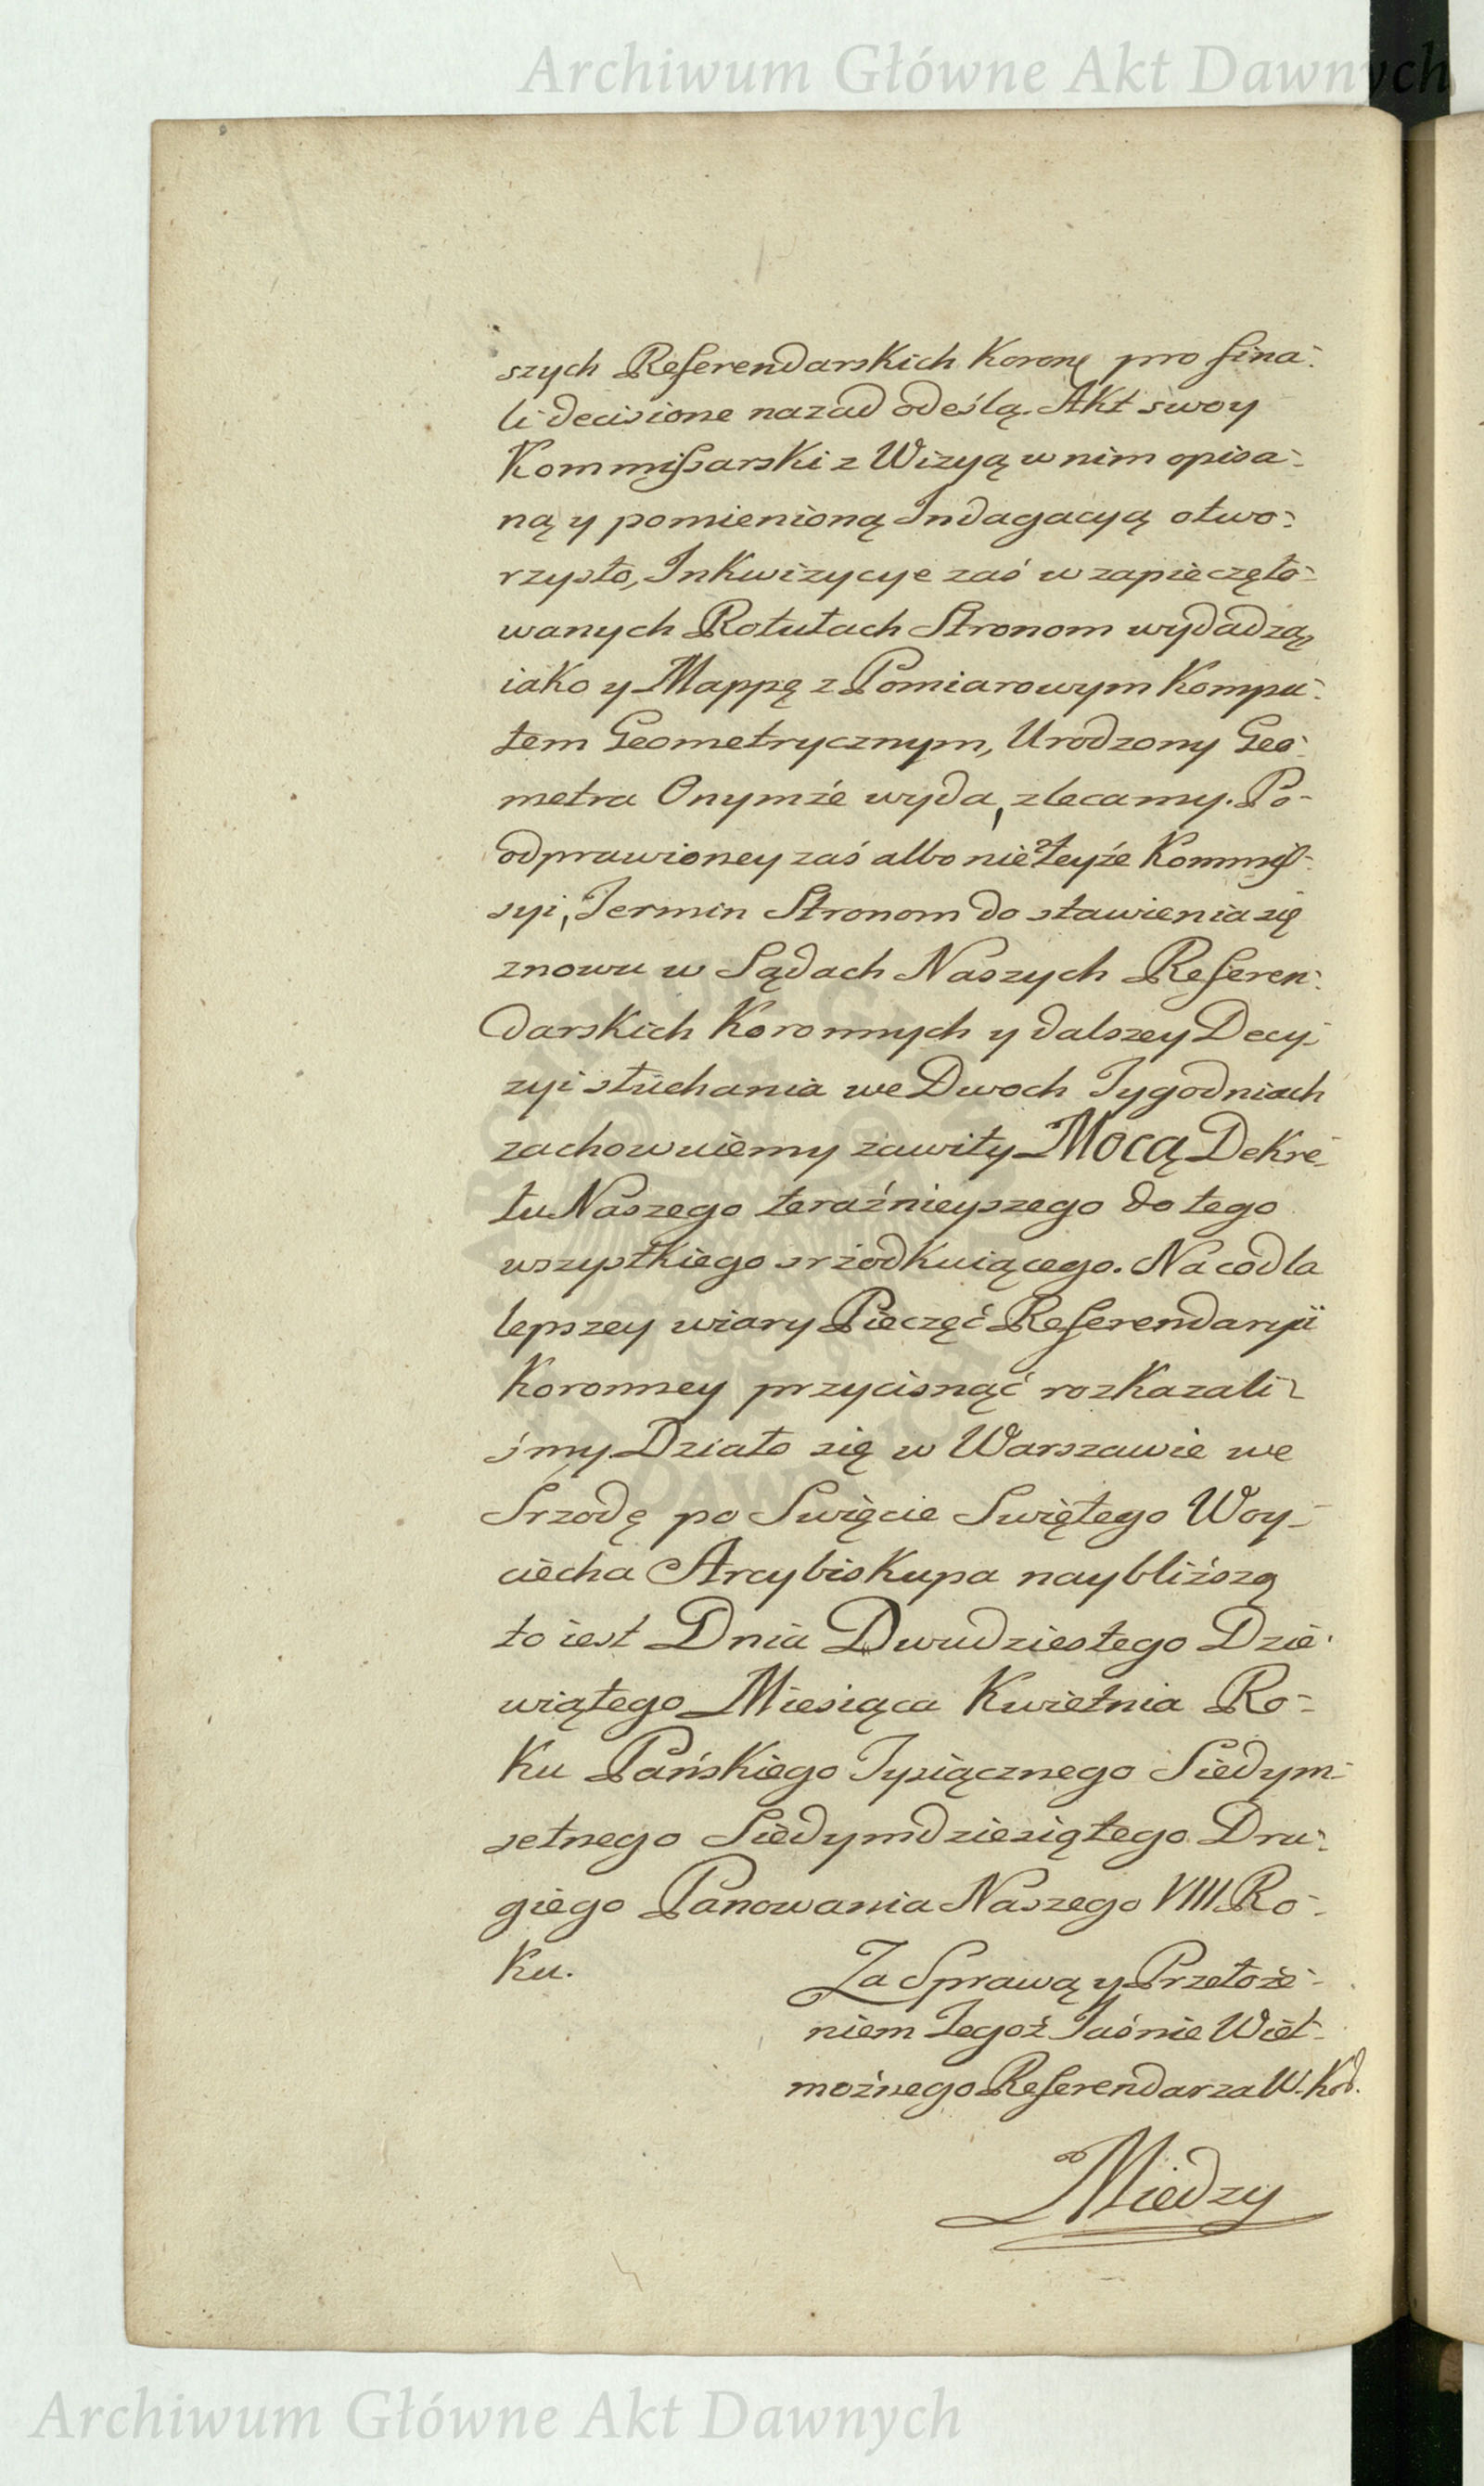 Archiwum Główne Akt Dawnych
szych Referendarskich Koronn pro fina-
li decisione nazad odeślą. Akt swoy
Kommissarski z Wizyą w nim opisa-
ną y pomienioną Indagacyą otwo-
rzysto, Inkwizycye zaś w zapieczęto-
wanych Rotułach Stronom wydadzą,
iako y Mappę z Pomiarowym Kompu-
tem Geometrycznym, Urodzony Geo-
metra Onymże wyda, zlecamy. Po-
odprawioney zaś albo nie teyże Kommis-
syi, Termin Stronom do stawienia się
znowu w Sądach Naszych Referen-
darskich Koronnych y dalszey Decy-
zyi słuchania we Dwoch Tygodniach
zachowuiemy zawity Mocą Dekre-
tu Naszego teraźnieyszego do tego
wszystkiego srzodkuiącego. Na co dla
lepszey wiary Pieczęć Referendaryi
Koronney przycisnąć rozkazali-
śmy Działo się w Warszawie we
Srzodę po Swięcie Swiętego Woy-
ciecha Arcybiskupa naybliższą
to iest Dnia Dwudziestego Dzie-
wiątego Miesiąca Kwietnia Ro-
ku Pańskiego Tysiącznego Siedym-
setnego Siedymdziesiątego Dru-
giego Panowania Naszego VIII Ro-
ku.
Za Sprawą y Przełoże-
niem Tegoż Jaśnie Wiel-
możnego Referendarza W. Kor.
Miedzy
Archiwum Główne Akt Dawnych